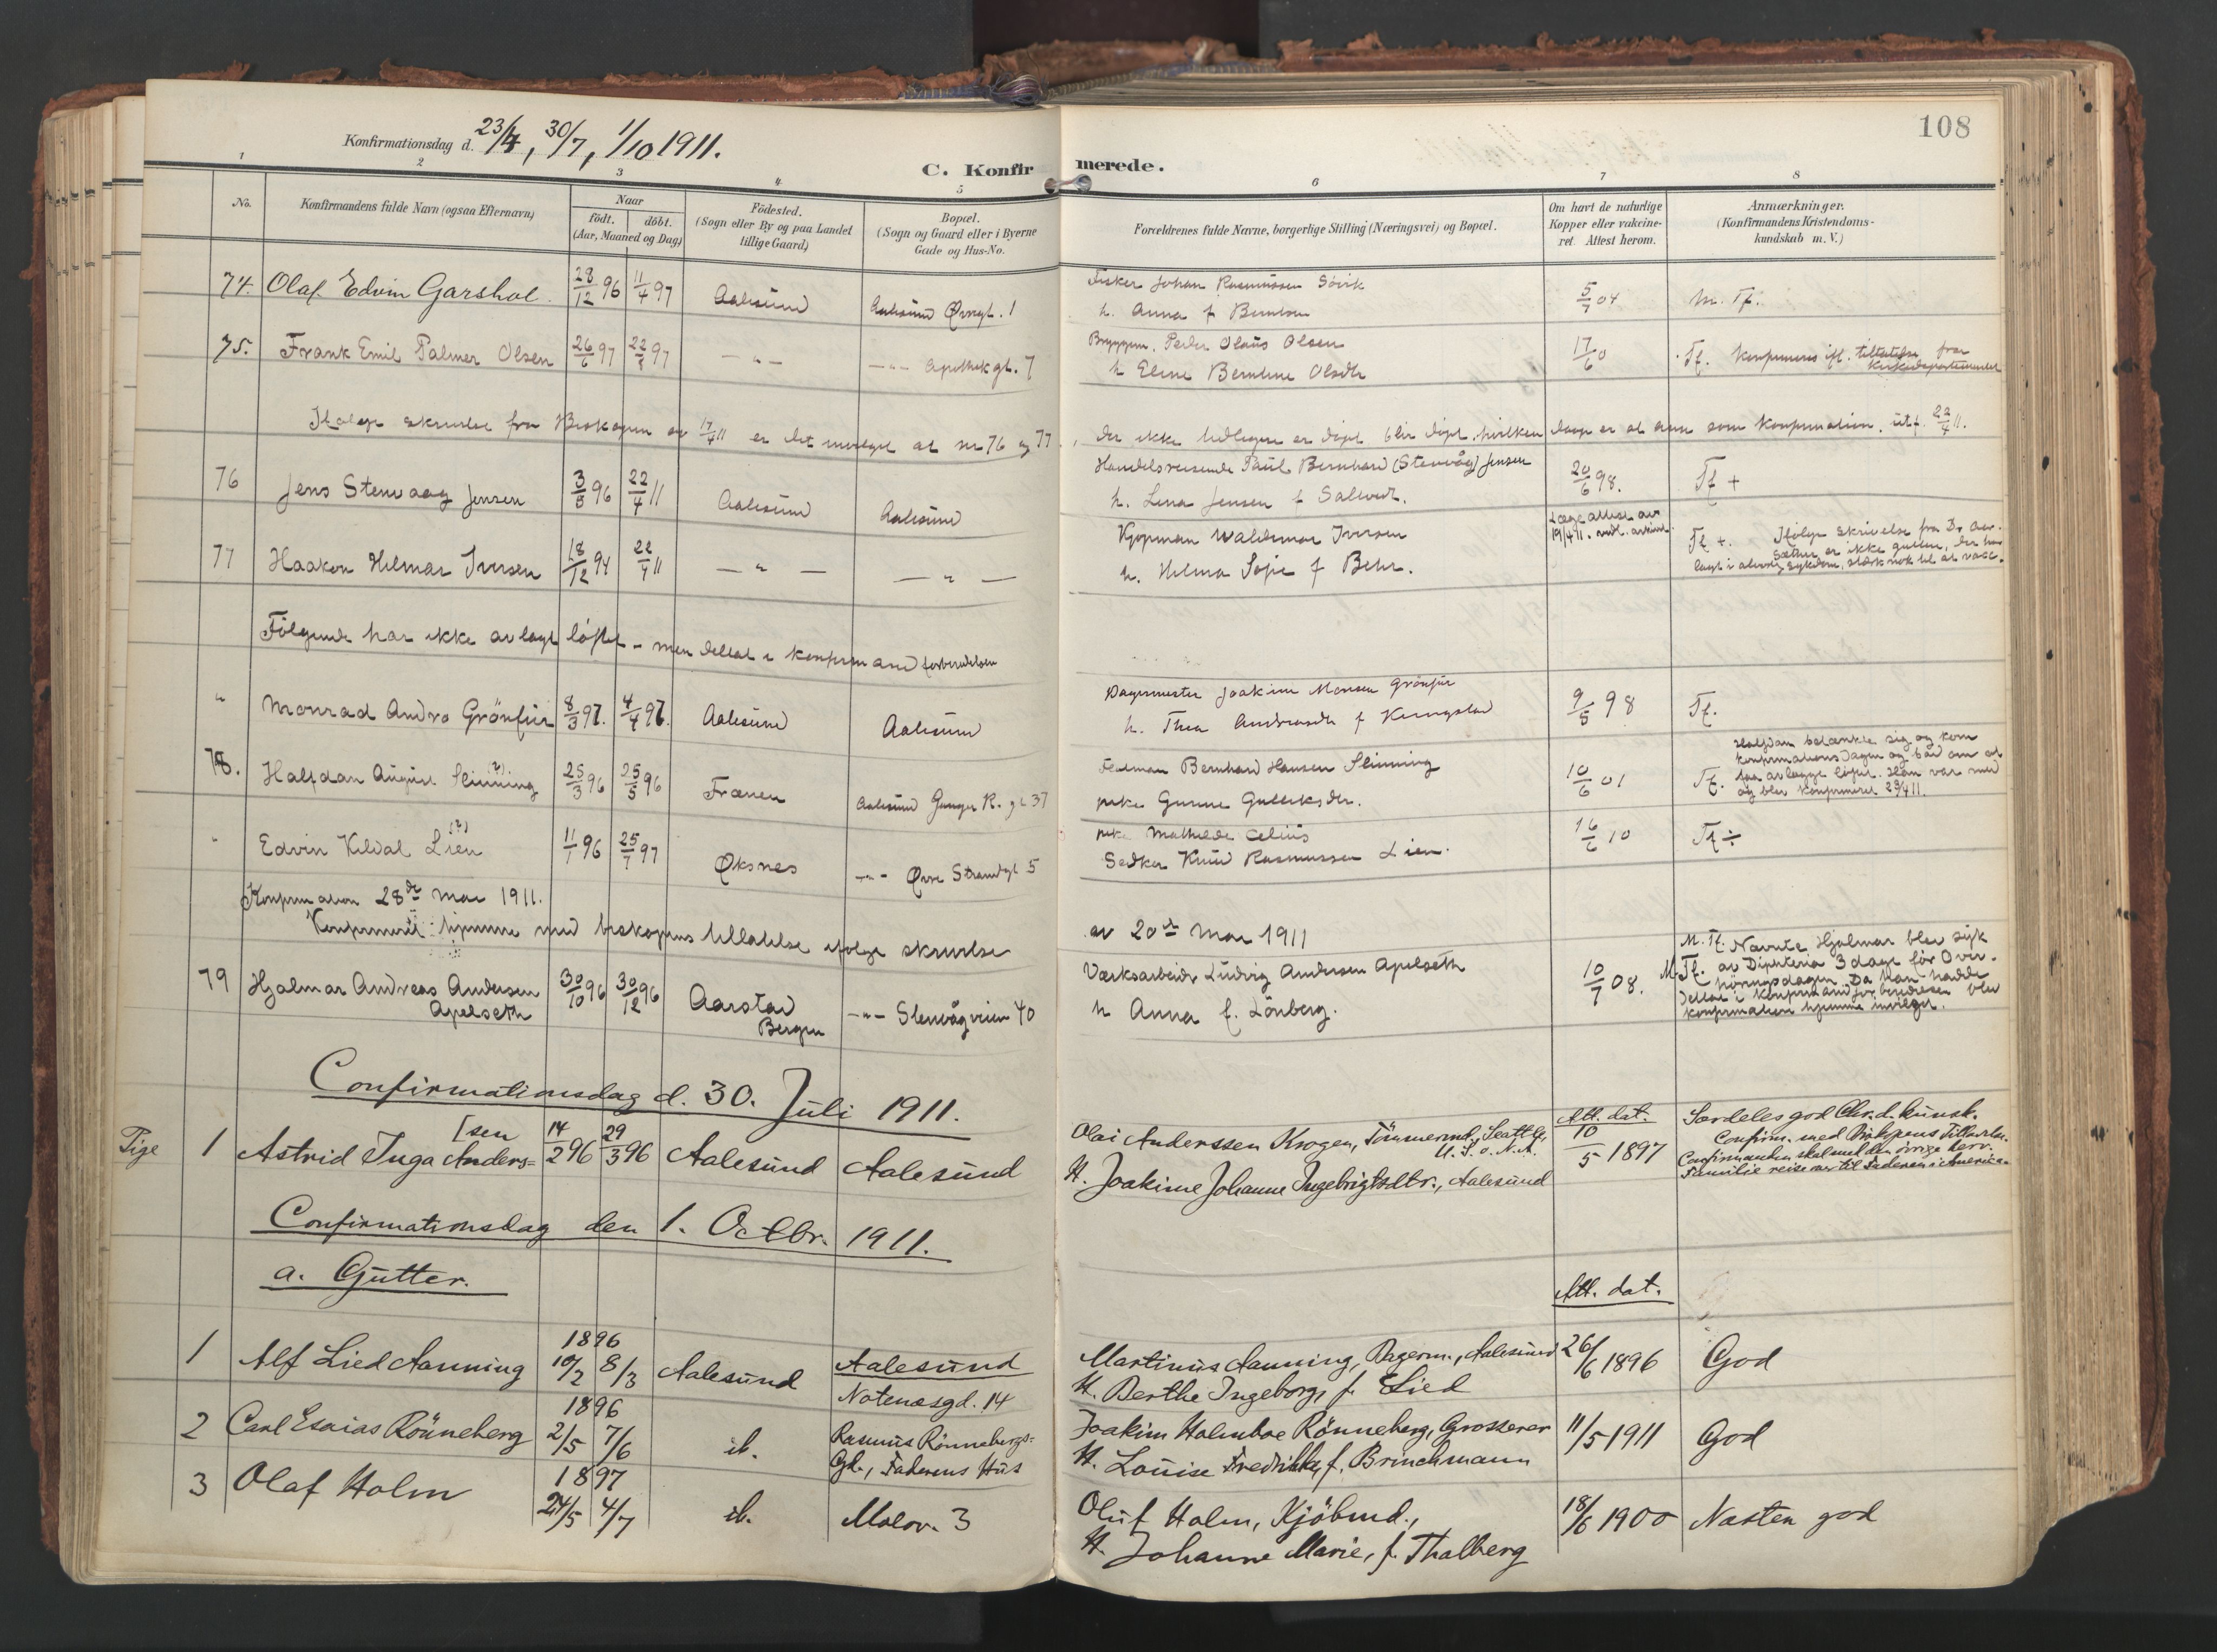 108
Konfirmationsdag d. 23/4, 30/7, 1/10 1911.
C. Konfirmerede.
1 2 3 4 5 6 7 8
No.
Konfirmandens fulde Navn (ogsaa Efternavn)
Naar
födt. döbt.
(Aar, Maaned og Dag)
Födested.
(Sogn eller By og paa Landet
tillige Gaard)
Bopæl.
(Sogn og Gaard eller i Byerne
Gade og Hus-No.
Forældrenes fulde Navne, borgerlige Stilling (Næringsvei) og Bopæl.
Om havt de naturlige
Kopper eller vakcine-
ret. Attest herom.
Anmærkninger.
(Konfirmandens Kristendoms-
kundskab m. V.)
74. Olaf Edvin Garshol. 28/12 96 11/4 97 Aalesund Aalesund 1
Fisker Johan Rasmussen Sövik
h. Anna f Berntsen
5/7 04 M. Tf.
75. Frank Emil Palmer Olsen 26/6 97 97 — " — — " — Apothekgt. 7
Peder Olaus Olsen
h Eline Berntine Olsdtr
17/6 0 Tf. Konfirmeres ifl. tilladelse fra
Kirkedepartementet
Ifølge skrivelse fra Biskopen av 17/4 11 er det innvilget at nr 76 og 77,
der ikke tidligere er døpt blir døpt, hvilken daap er at anse som Konfirmation. utf. 22/4 11.
76 Jens Stenvaag Jensen 3/5 96 22/4 11 Aalesund Aalesund
Handelsreisende Paul Bernhard (Stenvåg) Jensen
h. Lena Jensen f
20/6 98. Tf +
77 Haakon Hilmar Iversen 18/12 94 22/4 11 — " — — " —
Kjøpman Waldemar Iversen
h. Hilma Sofie f Behr.
Lægeattest av
19/4 11. vedl. arkivet
Tf +. Ifölge skrivelse fra Dr
Sætter er ikke gutten, der har
lagt i alvorlig sykdom, stærk nok til at vacc.
Fölgende har ikke avlagt löftet - men deltat i konfirmandforberedelsen
" Monrad Andro Grönfur 8/3 97. 4/4 97. Aalesund Aalesund
Bagermester Joakim Monsen Grönfur
h. Thea f
9/5 98 Tf.
78. Halfdan August Slinning (?) 25/3 96 25/5 96 Frænen Aalesund Ganger R. gt 37
Bernhard Hansen Slinning
pike Gurine Gulleksdtr.
10/6 01 Tf.
Halfdan betænkte sig og kom
konfirmationsdagen og bad om at
faa avlægge löftet. Han var med
og blev konfirmeret 23/4 11.
" Edvin Kildal Lien (?) 11/1 96 25/7 97 Øksnes — " — Øvre Strandgt 5
pike Mathilde Celius
Knud Rasmussen Lien.
16/6 10 Tf ÷
Konfirmation 28de Mai 1911.
Konfirmeret hjemme med biskopens tilladelse ifølge skrivelse
av 20de Mai 1911
79 Hjalmar Andreas Andersen
Apelseth
30/10 96 30/12 96 Aarstad
Bergen
— " — Stenvågveien 40
Værksarbeider Ludvig Andersen Apelseth
h Anna f. Lönberg.
10/7 08. M. Tf.
M. Tf. Nævnte Hjalmar blev syk
av Diphteria 3 dage för Over-
höringsdagen. Da han hadde
deltat i konfirmandforberedelsen blev
konfirmation hjemme innvilget.
Confirmationsdag d. 30. Juli 1911.
Pige 1 Astrid Inga Anders=
[sen
14/2 96 29/3 96 Aalesund Aalesund
Olai Anderssen Krogen, Tömmermd., Seattle,
U. S. o. N. A.
H. Joakime Johanne Ingebrigtsdtr., Aalesund
Att. dat.
10/5 1897
Særdeles god Chr.d.kunsk.
Confirm. med Biskopens Tilladelse.
Confirmanden skal med den övrige herv.
Familie reise over til Faderen i America.
Confirmationsdag den 1. Octbr. 1911.
a. Gutter.
Att. dat.
1 Alf Lied Aanning 1896 10/2 8/3 Aalesund Aalesund
Notenæsgd. 14
Martinus Aanning, Bagerm., Aalesund
H. Berthe Ingeborg, f. Lied
26/6 1896 God
2 Carl Esaias Rönneberg 1896 2/5 7/6 ib. Rasmus Rönnebergs=
Gd., Faderens Hus
Joakim Holmboe Rönneberg, Grosserer
H. Louise Fredrikke, f. Brinchmann
11/5 1911 God
3 Olaf Holm 1897 24/5 4/7 ib. Molov. 3
Oluf Holm, Kjöbmd.,
H. Johanne Marie, f. Thalberg
18/6 1900 Næsten god